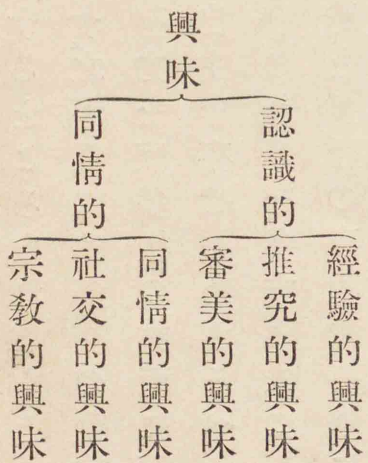 興味
認識的
經驗的興味
推究的興味
審美的興味
同情的
同情的興味
社交的興味
宗教的興味